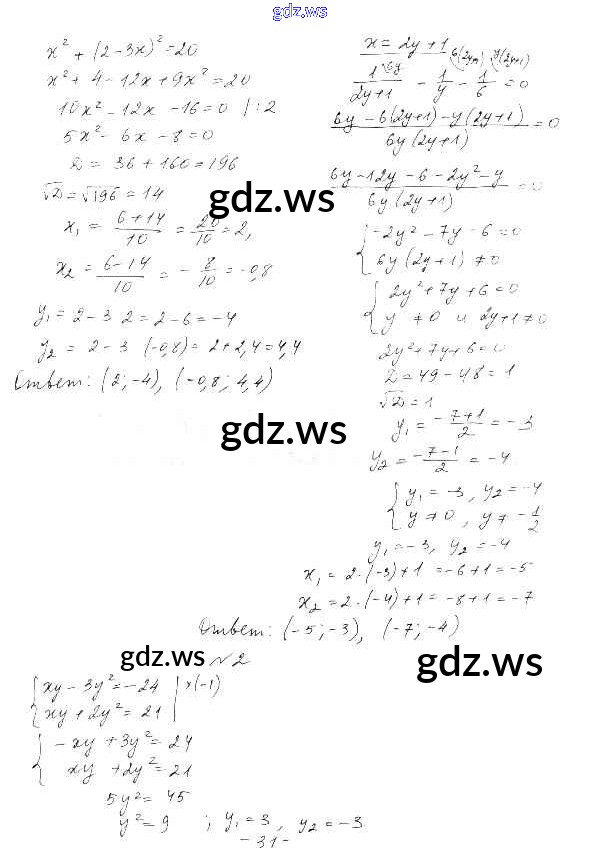 gdz.ws
x² + (2-3x)² = 20
x² + 4 - 12x + 9x² = 20
10x² - 12x - 16 = 0 | :2
5x² - 6x - 8 = 0
D = 36 + 160 = 196
√D = √196 = 14
x₁ = (6+14)/10 = 20/10 = 2,
x₂ = (6-14)/10 = -8/10 = -0,8
y₁ = 2 - 3 2 = 2 - 6 = -4
y₂ = 2 - 3 (-0,8) = 2 + 2,4 = 4,4
Ответ: (2; -4), (-0,8; 4,4)
x = 2y + 1
1/(2y+1) - 1/y - 1/6 = 0
6y 6(2y+1) y(2y+1)
(6y - 6(2y+1) - y(2y+1))/(6y(2y+1)) = 0
(6y - 12y - 6 - 2y² - y)/(6y(2y+1)) = 0
{ -2y² - 7y - 6 = 0
6y(2y+1) ≠ 0
{ 2y² + 7y + 6 = 0
y ≠ 0 и 2y+1 ≠ 0
2y² + 7y + 6 = 0
D = 49 - 48 = 1
√D = 1
y₁ = (-7+1)/2 = -3
y₂ = (-7-1)/2 = -4
{ y₁ = -3, y₂ = -4
y ≠ 0, y ≠ -1/2
y₁ = -3, y₂ = -4
x₁ = 2·(-3)+1 = -6+1 = -5
x₂ = 2·(-4)+1 = -8+1 = -7
Ответ: (-5; -3), (-7; -4)
gdz.ws
gdz.ws
gdz.ws
gdz.ws
№2
{ xy - 3y² = -24 | ×(-1)
xy + 2y² = 21
{ -xy + 3y² = 24
xy + 2y² = 21
5y² = 45
y² = 9 ; y₁ = 3, y₂ = -3
- 31 -